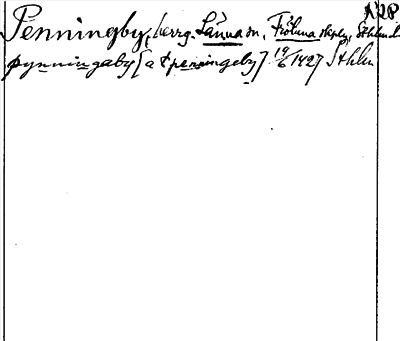 N 28
Penningby, herrg. Länna sn, Fröluna skplg, Sthlms l.
pynningaby [a t penningeby] 19/6 1427 Sthlm